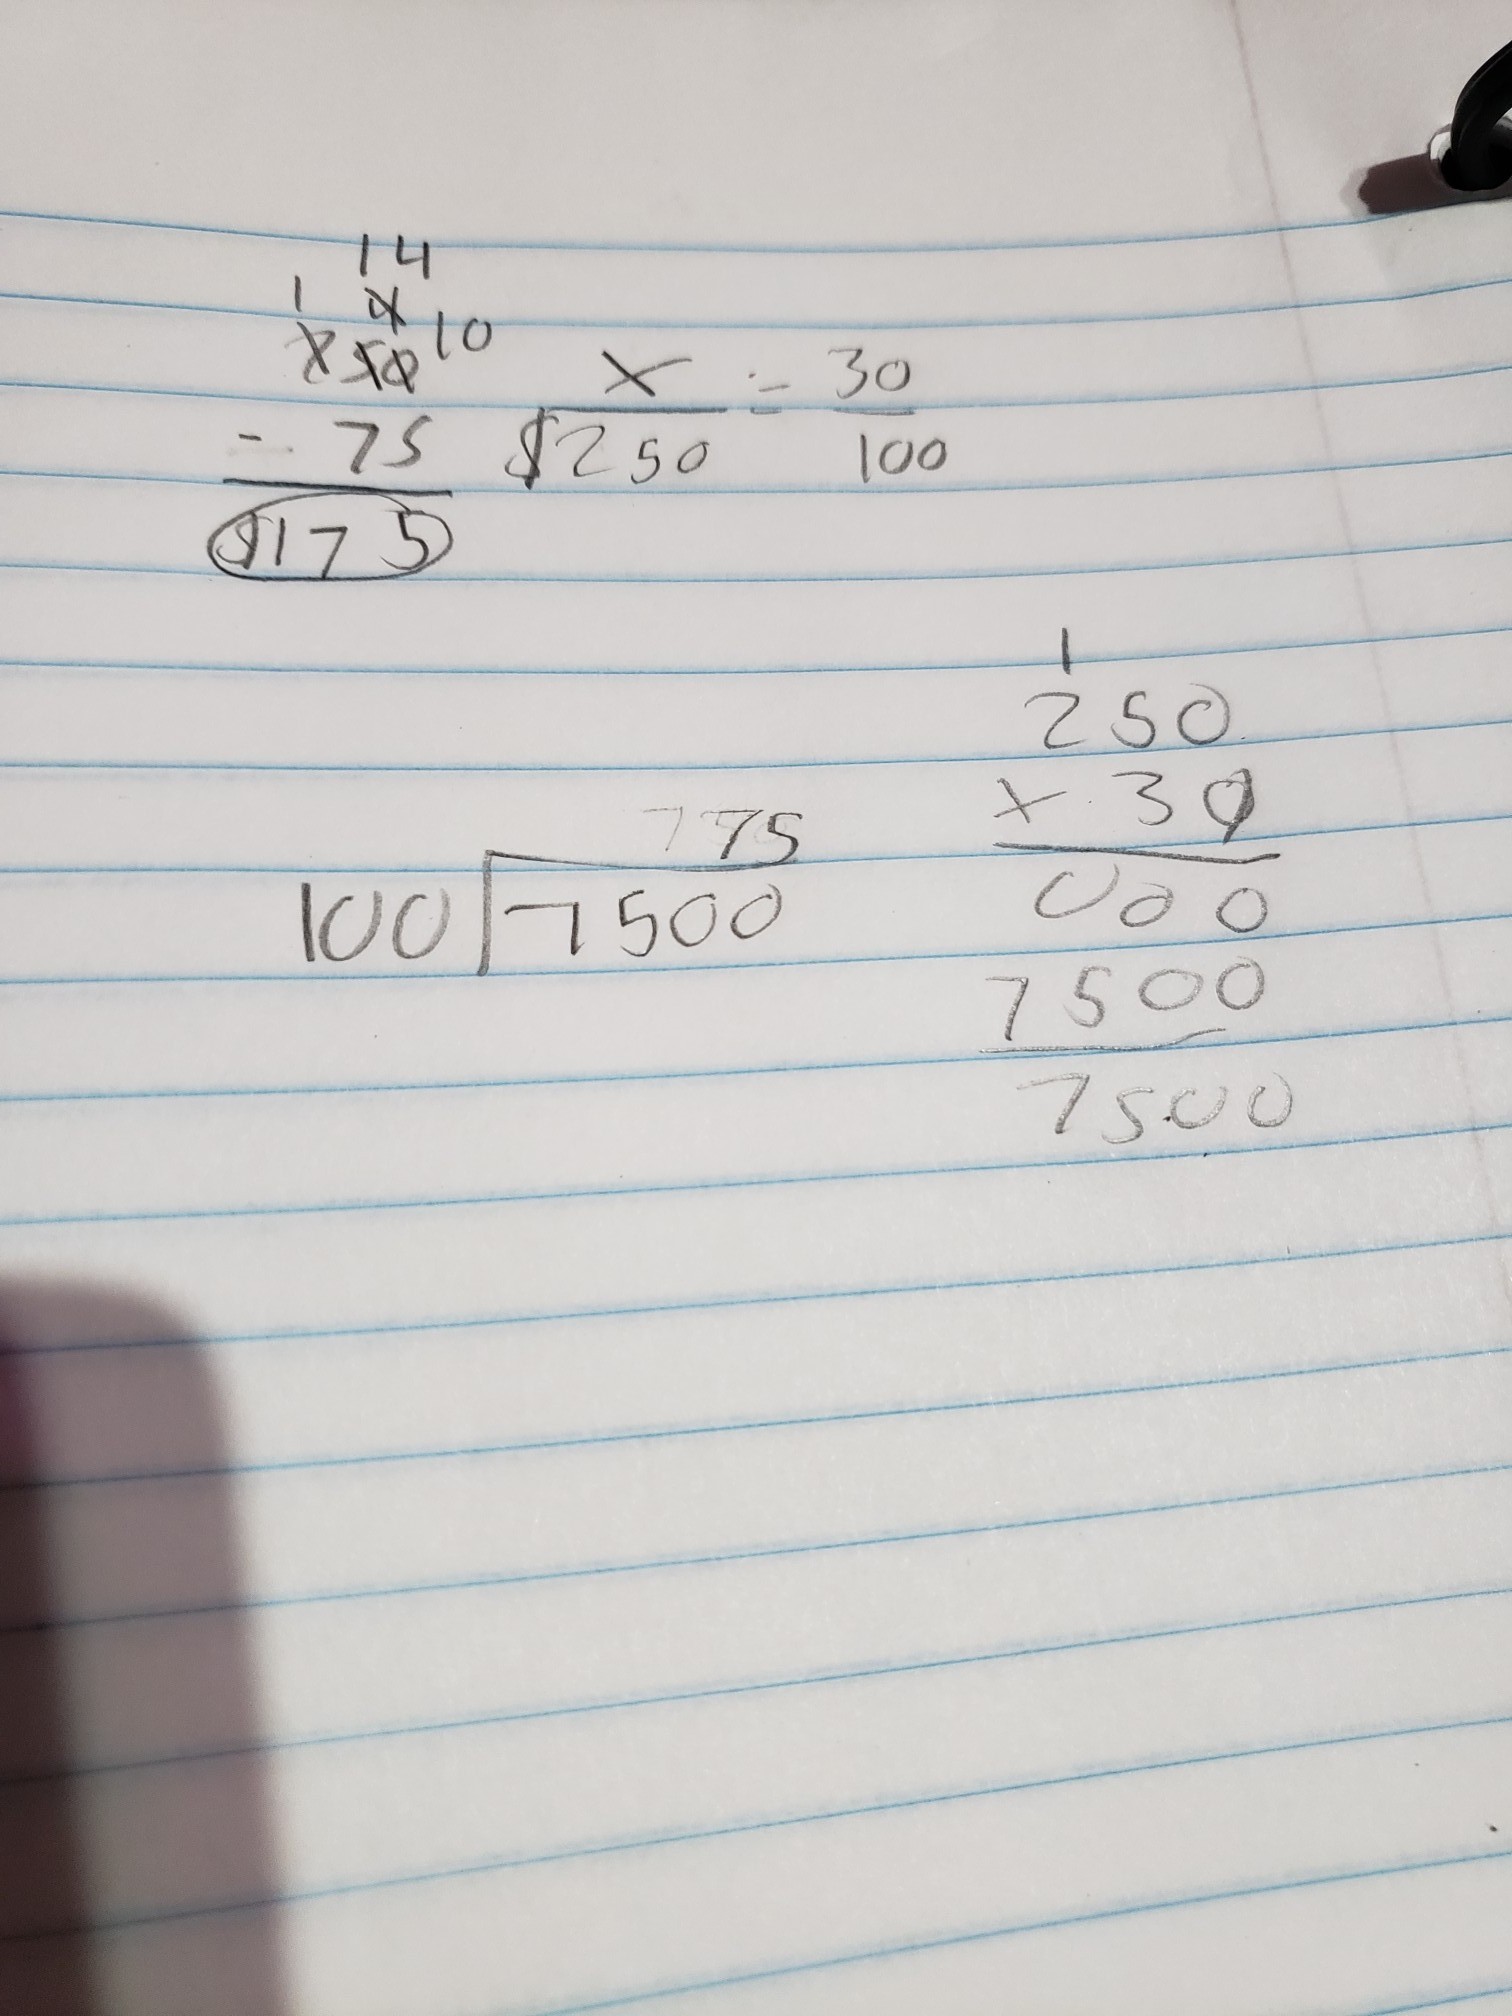 14
1 4 10
250
- 75
$175
x/$250 = 30/100
1
250
x 30
000
7500
7500
75
100 7500